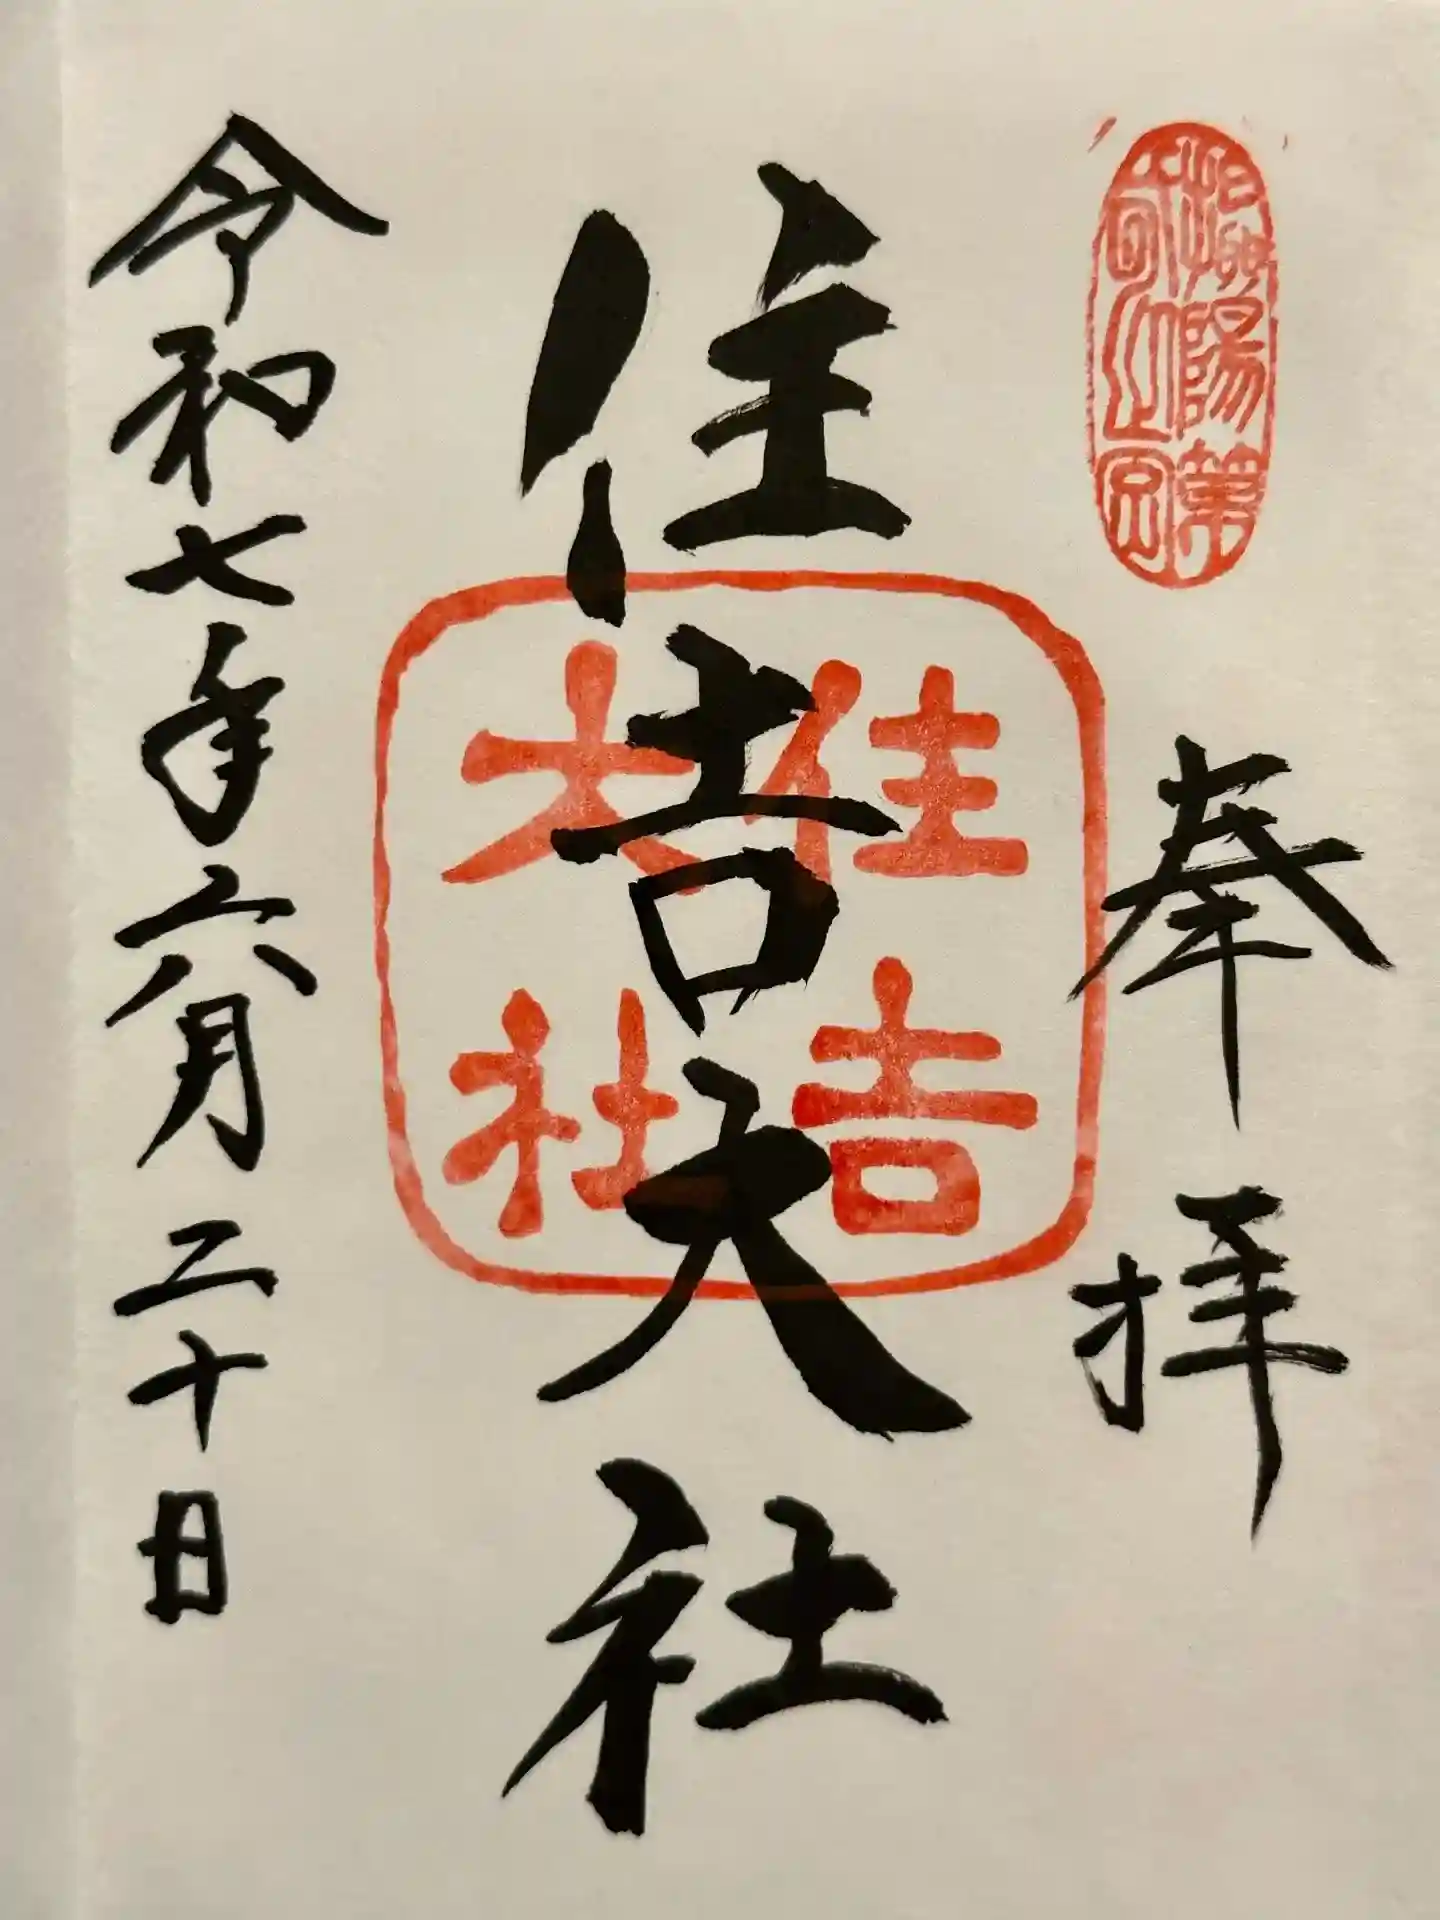 摂陽第
奉拝
住吉大社
住吉
大社
令和七年六月二十日